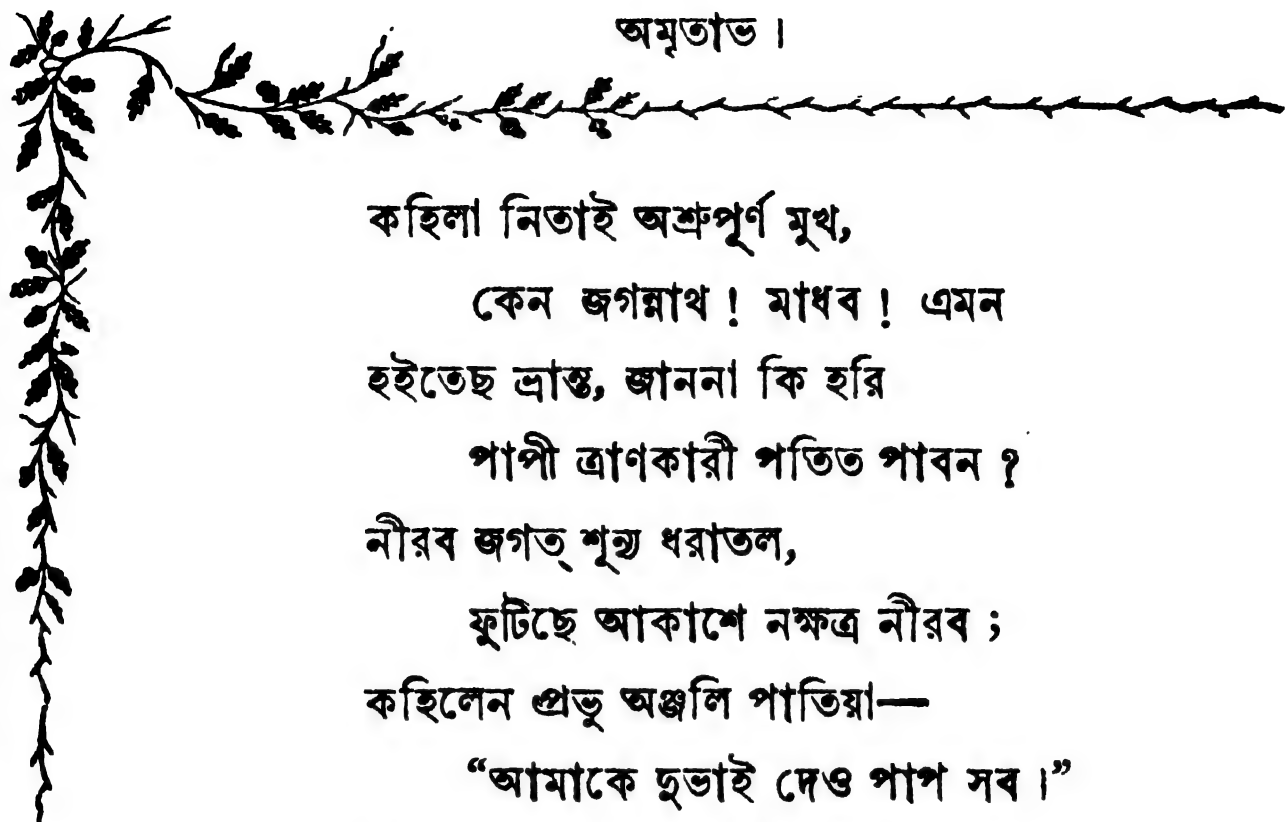 অমৃতাভ।
কহিলা নিতাই অশ্রুপূর্ণ মুখ,
কেন জগন্নাথ! মাধব! এমন
হইতেছ ভ্রান্ত, জাননা কি হরি
পাপী ত্রাণকারী পতিত পাবন?
নীরব জগত্ শূন্য ধরাতল,
ফুটিছে আকাশে নক্ষত্র নীরব;
কহিলেন প্রভু অঞ্জলি পাতিয়া—
“আমাকে দুভাই দেও পাপ সব।”